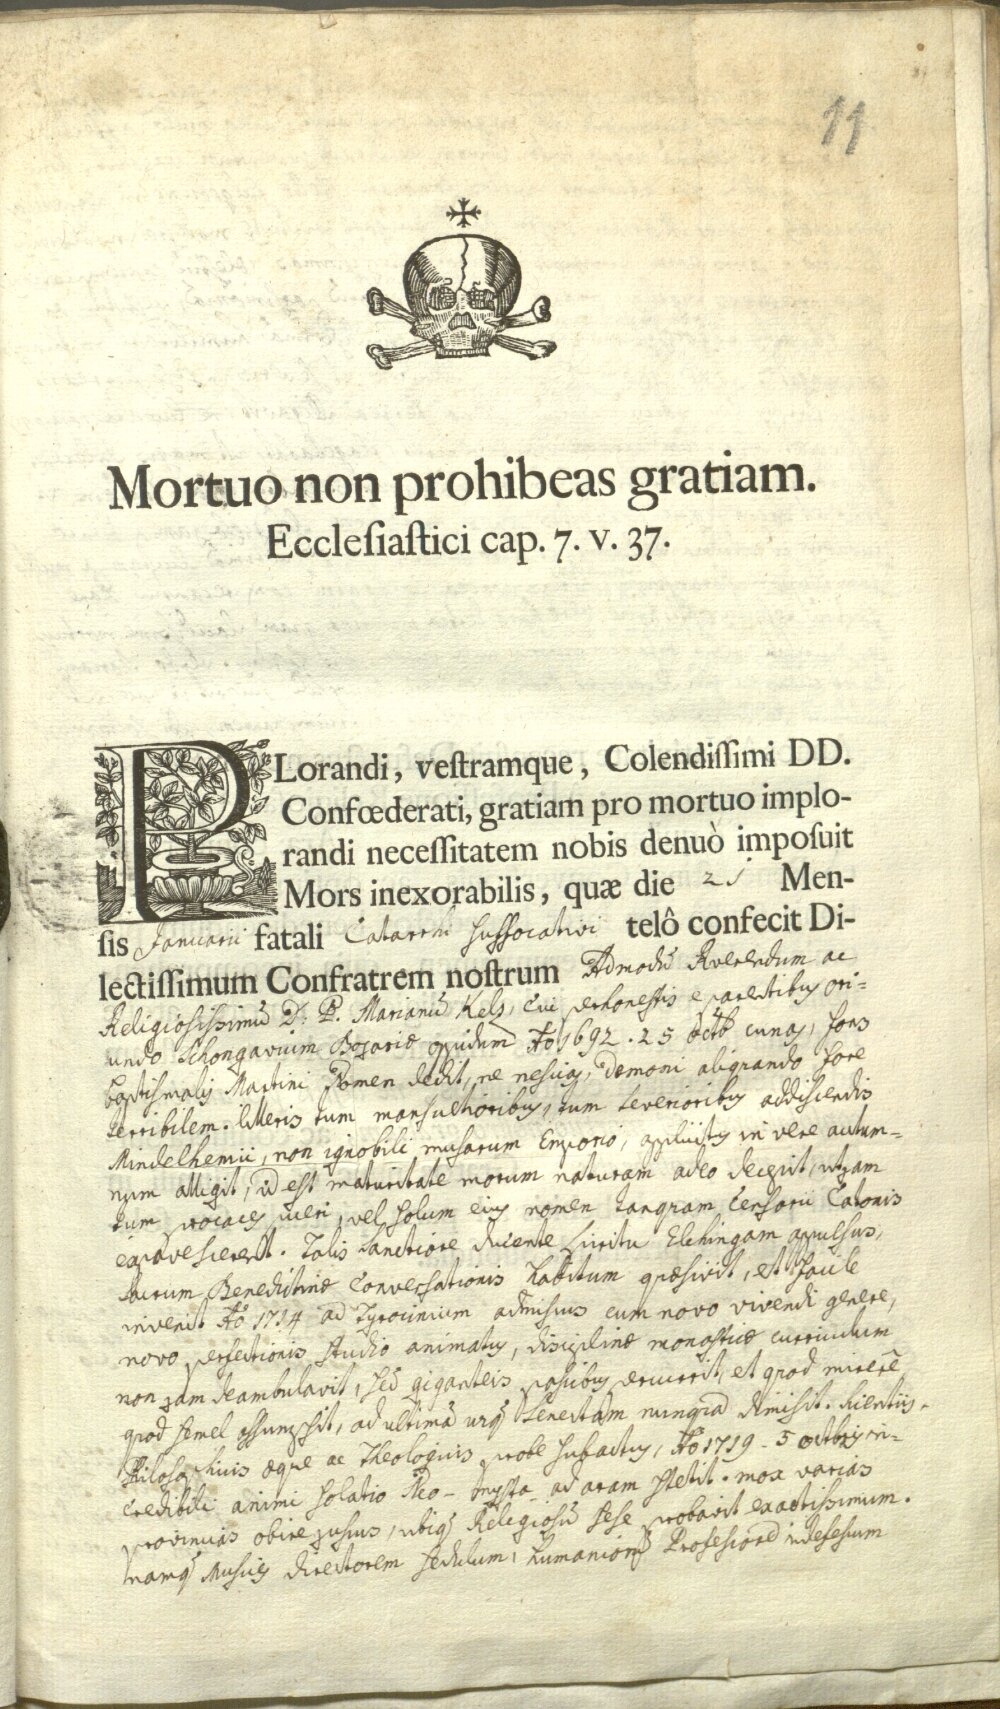 11
Mortuo non prohibeas gratiam.
Eccleſiaſtici cap. 7. v. 37.
PLorandi, veſtramque, Colendiſſimi DD.
Confœderati, gratiam pro mortuo implo-
randi neceſſitatem nobis denuò impoſuit
Mors inexorabilis, quæ die Men-
ſis Januarii fatali Catarrhi ſuffocativi telô confecit Di-
lectiſſimum Confratrem noſtrum Admodū Reverendum ac
Religiosissimū D. P. Marianū Kels, cui perhonestis e parentibus ori-
undo Schongavium Bojariæ oppidum Ao 1692. 25 octb cunas, fons
baptismalis Martini nomen dedit, ne nescias, Dæmoni aliquando fore
terribilem. litteris tum mansuetioribus, tum severioribus addiscendis
Mindelhemii, non ignobili musarum Emporio, in vere autum-
num id est maturitate morum naturam adeo decepit, utjam
tum procaces vel solum ejus nomen tanquam Censorii Catonis
expavescerent. Talis sanctiore ducente spiritu Elchingam appulsus,
sacrum Benedictinæ Conversationis habitum quæsivit, et facile
invenit. Ao 1714 ad Tyrocinium admissus cum novo vivendi genere,
novo perfectionis studio animatus, disciplinæ monasticæ curriculum
non jam deambulavit, sed giganteis passibus percurrit, et quod mirere
quod semel assumpsit, ad ultimā usq senectam nunquā dimisit. Scientiis
Philosophicis æque ac Theologicis probe subactus, Ao 1719 5 octbris in-
credibili animi solatio Neo-mysta ad aram stetit. mox varias
provincias obire jussus, ubiq Religiosū sese probavit exactissimum.
namq Musices directorem sedulum, humaniorū Professorē indefessum